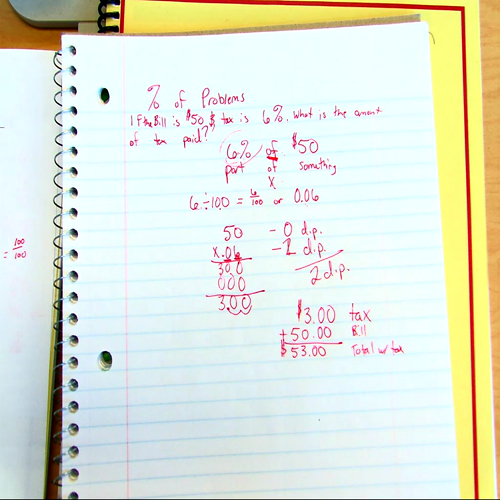 % of Problems
1 If the Bill is $50 $ tax is 6%. What is the amount
of tax paid?
6% of $50
part of something
x
6 ÷ 100 = 6/100 or 0.06
50 - 0 d.p.
x .06 - 2 d.p.
300 2 d.p.
000
3.00
$3.00 tax
+ 50.00 Bill
$53.00 Total w/ tax
= 100/100